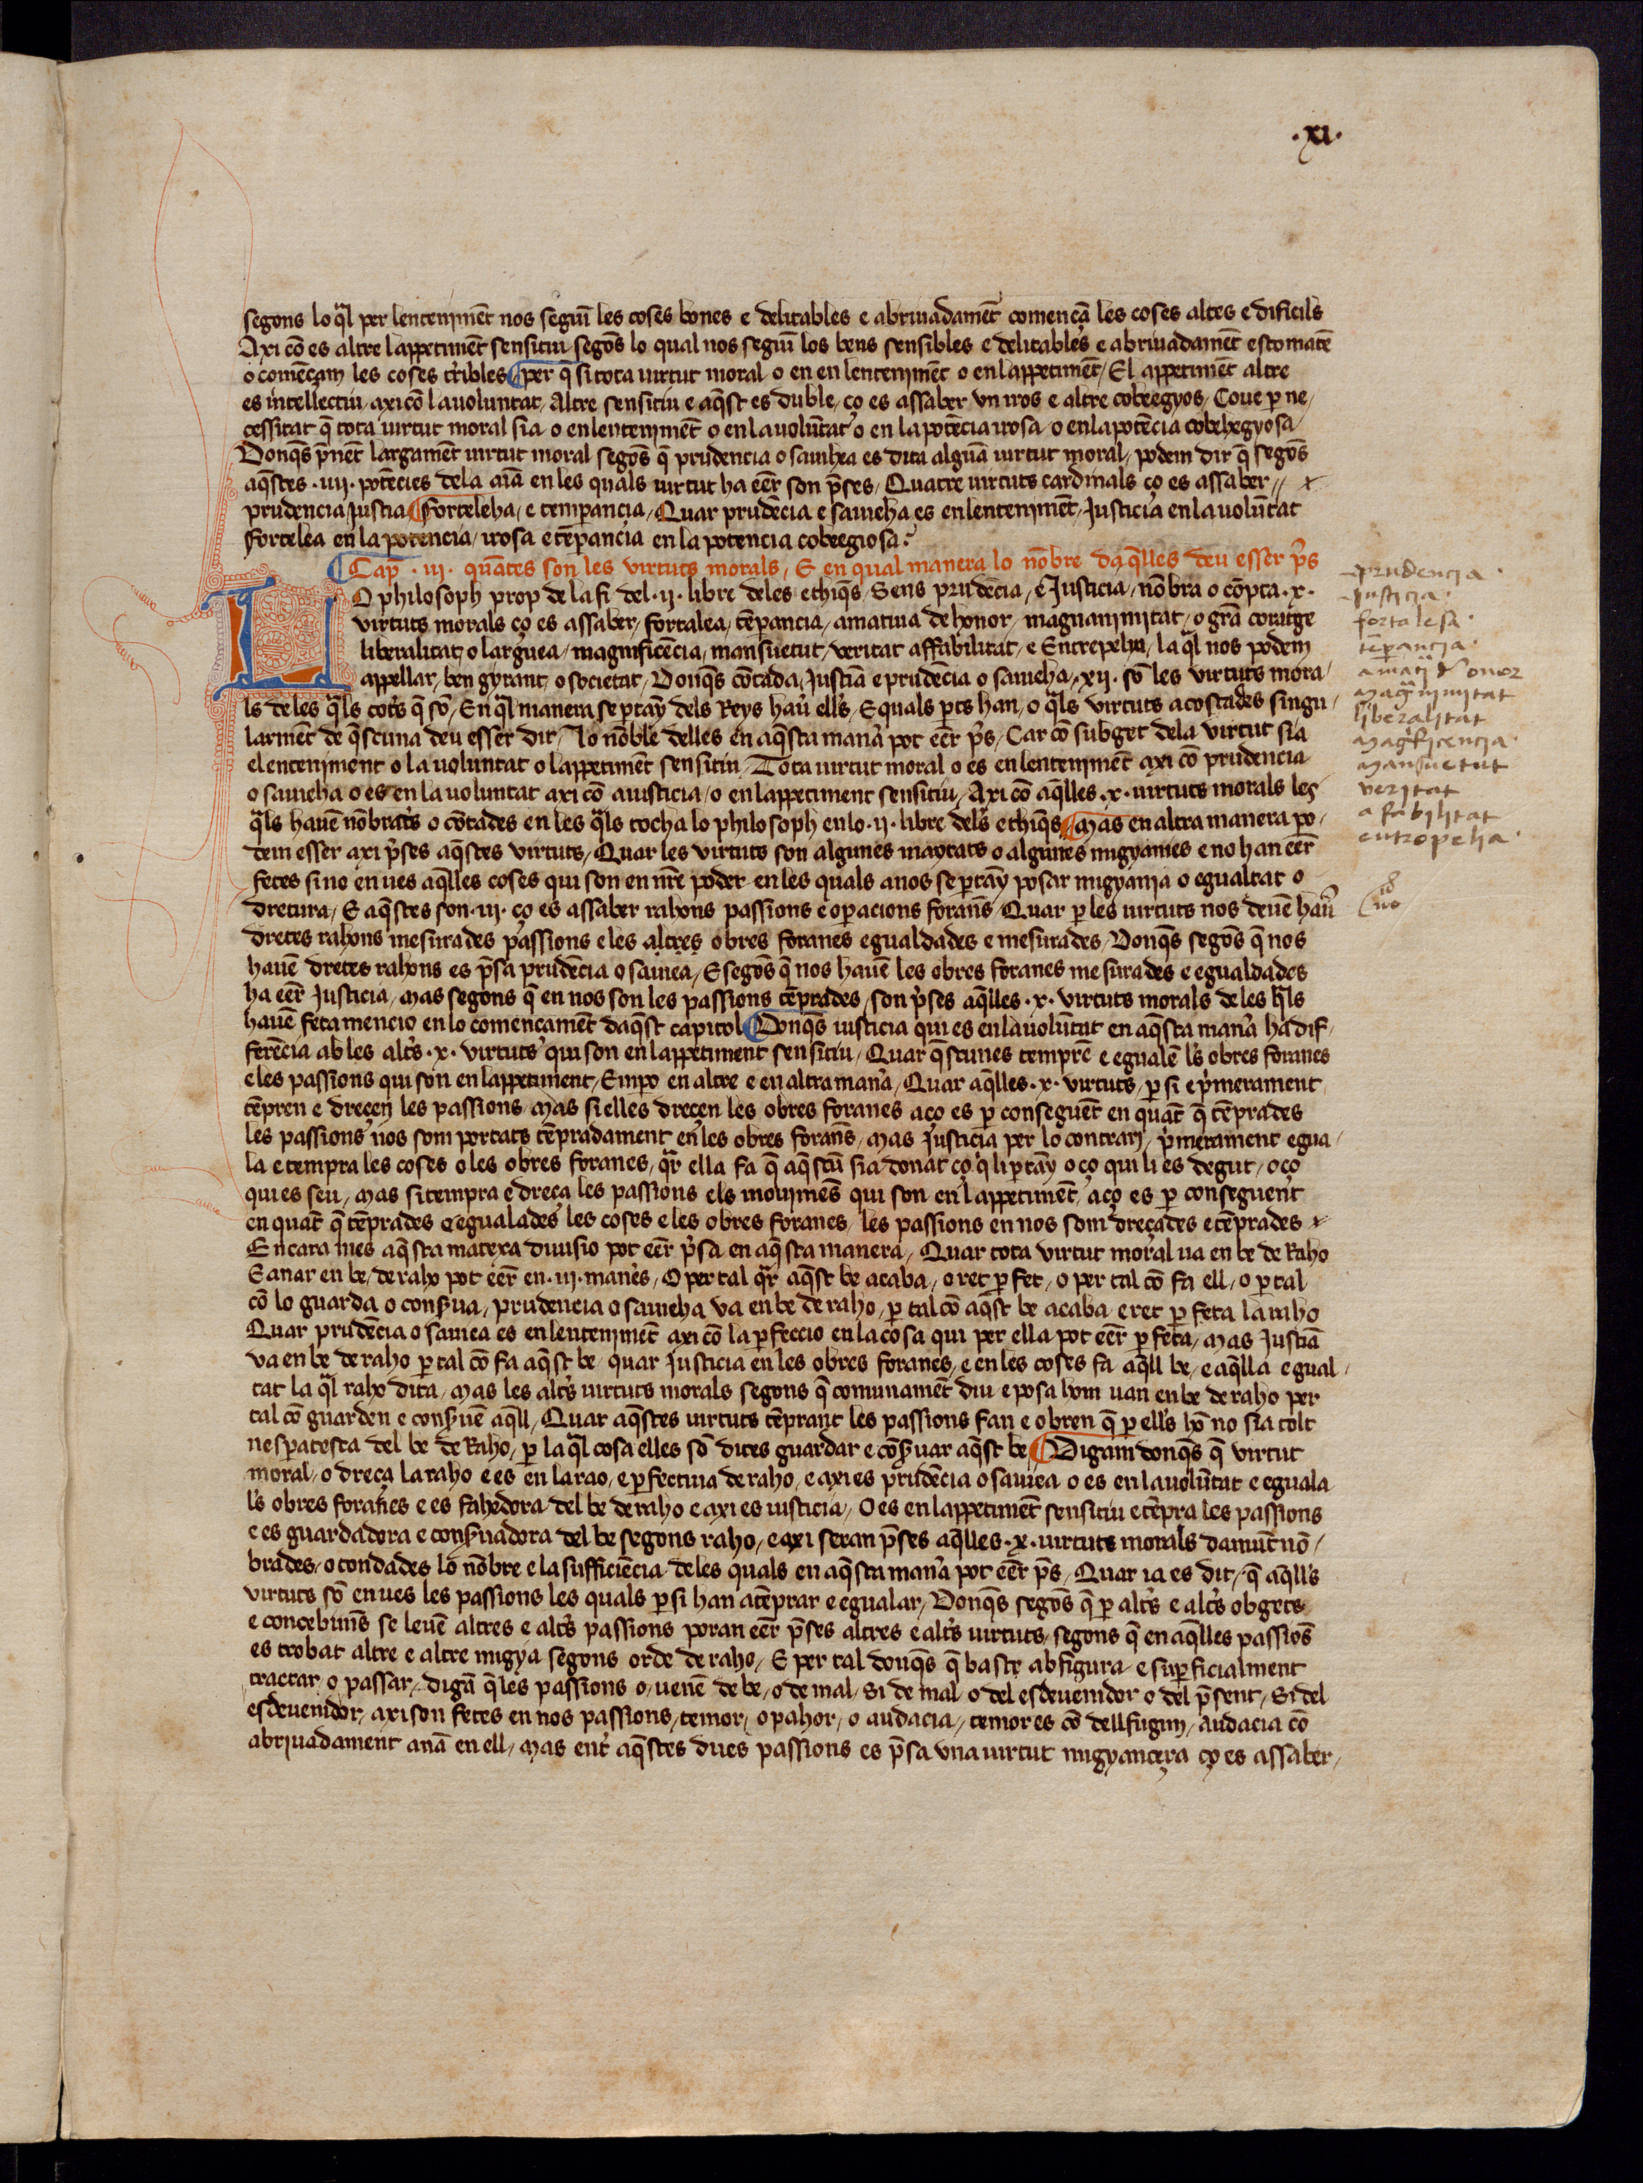 ·xi·
segons lo q̄l per lentenimēt nos seguī les coses bones e delitables e abriuadamēt comencā les coses altes e dificils
Axi cō es altre lappetimēt sensitiu segōs lo qual nos seguī los bens sensibles e delitables e abriuadamēt
o comēçam les coses t̄ribles ¶ per q̄ si tota uirtut moral o en en lentenimēt o en lappetimēt / El appetimēt altre
es intellectiu / axi cō la uoluntat / Altre sensitiu e aq̄st es duble / ço es assaber vn iros e altre cobeegyos / Coue p̲ ne /
cessitat q̄ tota uirtut moral sia o en lentenimēt o en la uolūtat o en la potēcia irosa o en la potēcia cobehegyosa /
Donq̄s p̄nēt largamēt uirtut moral segōs q̄ prudencia o sauihea es dita alguā uirtut moral / podem dir q̄ segōs
aq̄stes ·iiij· potēcies de la aīa en les quals uirtut ha eēr son p̄ses / Quatre uirtuts cardinals ço es assaber //
prudencia Justia ¶ forteleha / e temperancia / Quar prudēcia e sauieha es en lentenimēt / Justicia en la uolūtat
fortelea en la potencia / irosa e tēperancia en la potencia cobeegiosa :
¶ Cap̄ ·iij· quātes son les virtuts morals / E en qual manera lo nōbre daq̄lles deu esser p̄s
LO philosoph prop de la fi del ·ij· libre de les ethiq̄s / Sens prudēcia / e Justicia / nōbra o cōpta ·x·
virtuts morals ço es assaber / fortalea / tēperancia / amatiua de honor / magnanimitat / o grā coratge
liberalitat / o larguea / magnificēcia / mansuetut / veritat affabilitat / e Entrepelia / la q̄l nos podem
appellar / ben gyrant / o societat / Donq̄s cōtada / Justiā e prudēcia o sauieha / xij· sō les virtuts mora /
ls de les q̄ls tots q̄ sō / En q̄l manera se p̲tāy dels Reys hau̓ ells / E quals p̲ts han / o q̄ls virtuts acostades singu /
larmēt de q̄scuna deu esser dit / Lo nōble delles en aq̄sta man̓a pot eēr p̄s / Car cō subget de la virtut sia
el enteniment o la uoluntat o lappetimēt sensitiu / Tota uirtut moral o es en lentenimēt axi cō prudencia
o sauieha o es en la uoluntat axi cō a iusticia / o en lappetiment sensitiu / Axi cō aq̄lles ·x· uirtuts morals les
q̄ls hauē nōbrats o cōtades en les q̄ls tocha lo philosoph en lo ·ij· libre dels ethiq̄s ¶ Mas en altra manera po /
dem esser axi p̄ses aq̄stes virtuts / Quar les virtuts son algunes maytats o algunes migyanies e no han eēr
fetes sino en ues aq̄lles coses qui son en nr̄e poder en les quals a nos se p̲tāy posar migyania o egualtat o
dretura / E aq̄stes son ·iij· ço es assaber rahons passions e op̲acions forans / Quar p̲ les uirtuts nos deuē hau̓
dretes rahons mesurades passions e les altres obres foranes egualdades e mesurades / Donq̄s segōs q̄ nos
hauē dretes rahons es p̄sa prudēcia o sauiea / E segōs q̄ nos hauē les obres foranes mesurades e egualdades
ha eēr Justicia / Mas segons q̄ en nos son les passions tēprades / son p̄ses aq̄lles ·x· virtuts morals de les q̄ls
hauē feta mencio en lo començamēt daq̄st capitol ¶ Donq̄s iusticia qui es en la uolūtat en aq̄sta man̓a ha dif /
ferēcia ab les alt̓s ·x· virtuts qui son en lappetiment sensitiu / Quar q̄scunes temprē e egualē ls obres foranes
e les passions qui son en lappetiment / Emp̲o en altre e en altra man̓a / Quar aq̄lles ·x· virtuts / p̲ si e p̓merament
tēpren e dreçen les passions Mas si elles dreçen les obres foranes aço es p̲ conseguēt en quāt q̄ tēprades
les passions nos som portats tēpradament en les obres forans / Mas Justicia per lo contrari / p̓merament egua /
la e tempra les coses o les obres foranes / q̄r ella fa q̄ aq̄stū sia donat ço q̄ li p̲tāy o ço qui li es degut / o ço
qui es seu / Mas si tempra e dreça les passions els mouimēs qui son en lappetimēt / aço es p̲ conseguent
en quāt q̄ tēprades e egualades les coses e les obres foranes / les passions en nos som dreçades e tēprades
Encara mes aq̄sta matexa diuisio pot eēr p̄sa en aq̄sta manera / Quar tota virtut moral ua en be de Raho
E anar en be / de raho pot eēr en ·iij· man̓es / O per tal q̄r aq̄st be acaba / o ret p̲fet / o per tal cō fa ell / o p̲ tal
cō lo guarda o cons̄ua / prudencia o sauieha va en be de raho / p̲ tal cō aq̄st be acaba e ret p̲feta la raho
Quar prudēcia o sauiea es en lentenimēt axi cō la p̲feccio en la cosa qui per ella pot eēr p̲feta / Mas Justiā
va en be de raho p̲ tal cō fa aq̄st be / quar Justicia en les obres foranes / e en les coses fa aq̄ll be / e aq̄lla egual /
tat la q̄l raho dita / Mas les alt̓s uirtuts morals segons q̄ comunamēt diu e posa hom uan en be de raho per
tal cō guarden e cons̄uē aq̄ll / Quar aq̄stes uirtuts tēprant les passions fan e obren q̄ p̲ ells hō no sia tolt
ne sp̲atesta del be de Raho / p̲ la q̄l cosa elles sō dites guardar e cōs̄uar aq̄st be ¶ Digam donq̄s q̄ virtut
moral / o dreça la raho e es en la rao / e p̲fectiua de raho / e axi es prudēcia o sauiea o es en la uolūtat e eguala
ls obres foranes e es fahedora del be de raho e axi es iusticia / O es en lappetimēt sensitiu e tēpra les passions
e es guardadora e cons̄uadora del be segons raho / e axi seran p̄ses aq̄lles ·x· uirtuts morals damūt nō /
brades / o condades lo nōbre e la sufficiēcia de les quals en aq̄sta man̓a pot eēr p̄s / Quar ia es dit / q̄ aq̄lls
virtuts sō en ues les passions les quals p̲ si han a tēprar e egualar / Donq̄s segōs q̄ p̲ alt̓s e alt̓s obgets
e concebimēs se leuē altres e alt̓s passions poran eēr p̄ses altres e alt̓s uirtuts / segons q̄ en aq̄lles passiōs
es trobat altre e altre migya segons orde de raho / E per tal donq̄s q̄ baste ab figura e sup̲ficialment
tractar o passar / digā q̄ les passions o uenē de be / o de mal / Si de mal o del esdeuenidor o del p̄sent / Si del
esdeuenidor / axi son fetes en nos passions / temor / o pahor / o audacia / temor es cō dell fugim / audacia cō
abriuadament anā en ell / Mas ent̓ aq̄stes dues passions es p̄sa vna uirtut migyancera ço es assaber /
prudencia ·
Justicia ·
fortalesa ·
tēperancia ·
amati͞u d onor
mag̃nimitat
liberalitat
mag̃ficencia ·
mansuetut
veritat
afabilitat
eutropelia ·